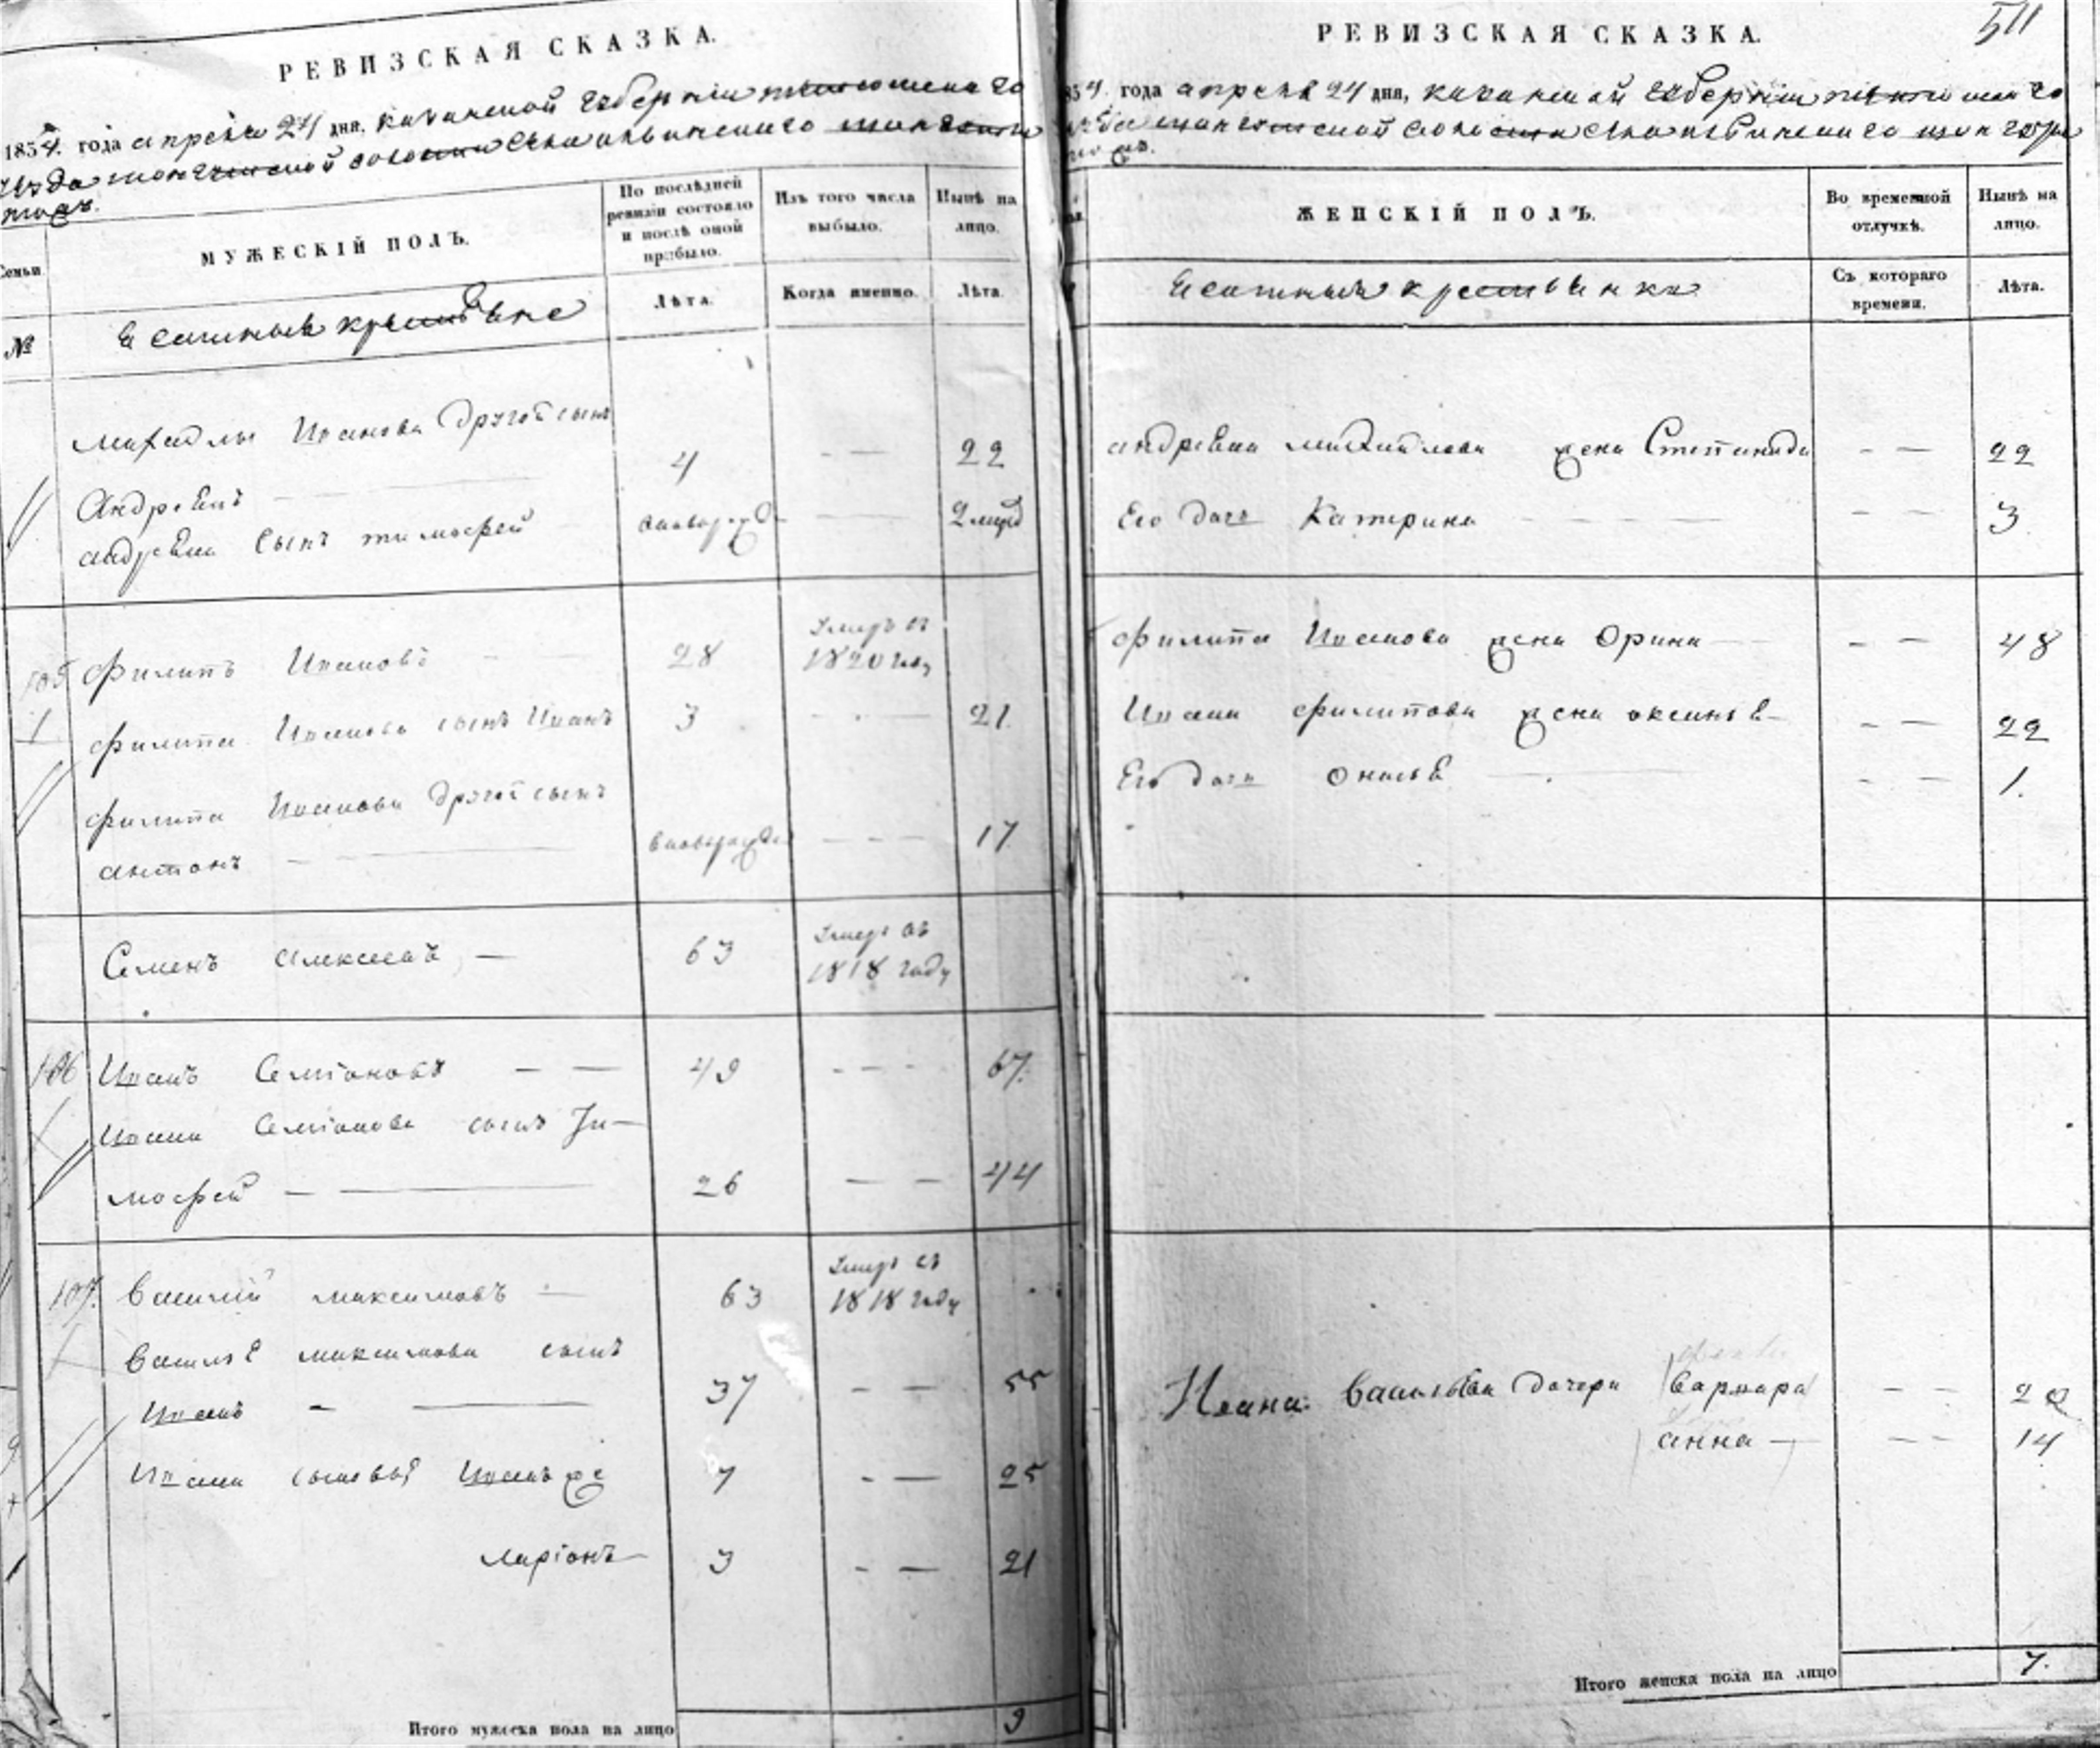 РЕВИЗСКАЯ СКАЗКА.
1834. года апреля 24 дня, казанской губернии
уезда
МУЖЕСКІЙ ПОЛЪ.
По послѣдней ревизіи состояло и послѣ оной прибыло.
Изъ того числа выбыло.
Нынѣ на лицо.
Семьи
№
Ясашныя крестьяне
Лѣта.
Когда именно.
Лѣта.
Михайлы Иванова другой сынъ
Андреянъ 4 22
андреяна сынъ тимофей 2
105 филипъ Ивановъ 28 Умеръ въ 1820 году
1 филипа Иванова сынъ Иванъ 3 21.
филипа Иванова другой сынъ
антонъ 17
Семенъ алексеевъ 63 Умеръ въ 1818 году
106 Иванъ Семіоновъ 49 67.
Ивана Семіонова сынъ Ти-
мофей 26 44
107. Василий максимовъ 63 Умеръ въ 1818 году
Василья максимова сынъ
Иванъ 37 55
Ивана сыновья Иванъ же 7 25
ларіонъ 3 21
Итого мужеска пола на лицо 9
511
РЕВИЗСКАЯ СКАЗКА.
года апреля 24 дня, казанской губернии
ЖЕНСКІЙ ПОЛЪ.
Во временной отлучкѣ.
Нынѣ на лицо.
Ясашныя крестьянки
Съ котораго времени.
Лѣта.
андреяна михайлова жена Степанида 22
Его дочь Катерина 3
филипа Иванова жена Орина 48
Ивана филипова жена оксинья 22
Его дочь 1.
Ивана Васильева дочери Варвара 20
анна 14
Итого женска пола на лицо 7.